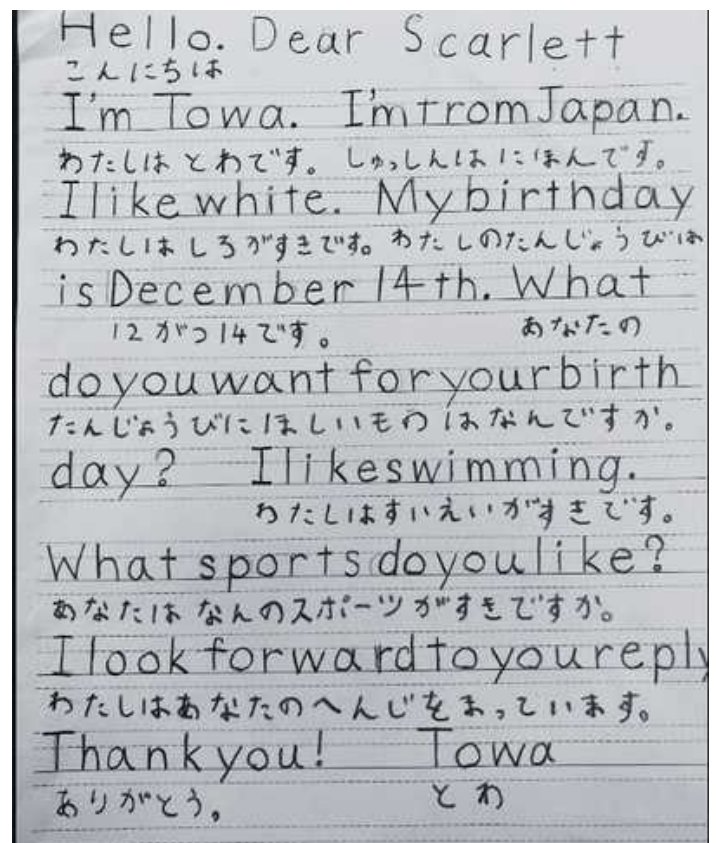 Hello. Dear Scarlett
こんにちは
I'm Towa. I'm from Japan.
わたしは とわです。 しゅっしんは にほんです。
I like white. My birthday
わたしは しろがすきです。 わたしのたんじょうびは
is December 14th. What
12がつ14です。 あなたの
do you want for your birth
たんじょうびに ほしいもの はなんですか。
day? I like swimming.
わたしはすいえいがすきです。
What sports do you like?
あなたは なんのスポーツがすきですか。
I look forward to you reply
わたしはあなたのへんじをまっています。
Thank you! Towa
ありがとう。 とわ